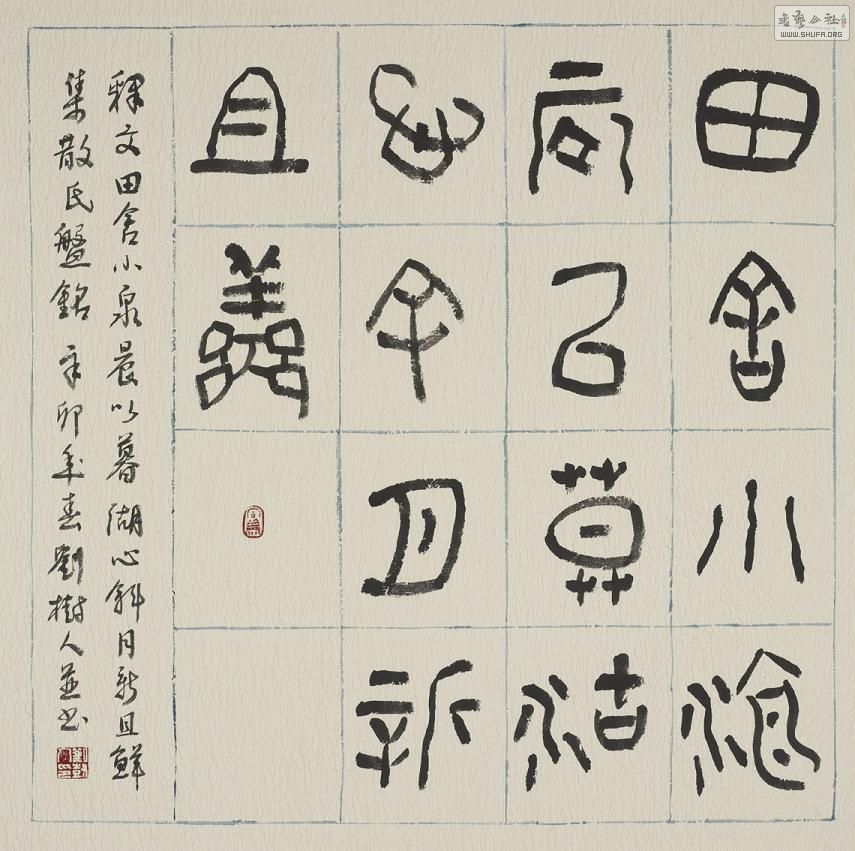 田舍小泉
晨以莫湖
心斜月新
且鮮
釋文田舍小泉晨以暮湖心斜月新且鮮
集散氏盤銘 辛卯年春劉樹人並書
書藝公社
WWW.SHUFA.ORG